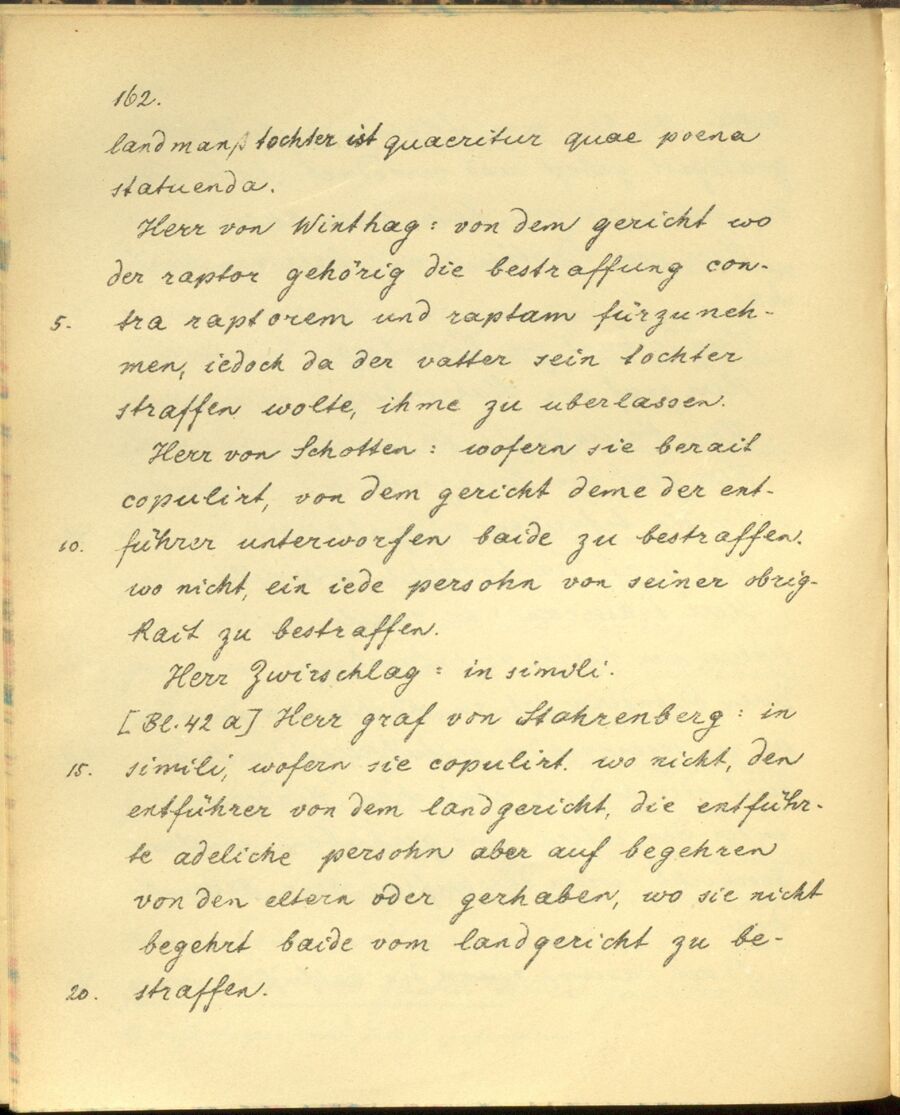 162.
landmanß tochter ist quaeritur quae poena
statuenda.
Herr von Winthag: von dem gericht wo
der raptor gehörig die bestraffung con-
5. tra raptorem und raptam fürzuneh-
men, iedoch da der vatter sein tochter
straffen wolte, ihme zu uberlassen.
Herr von Schotten: wofern sie berait
copulirt, von dem gericht deme der ent-
10. führer unterworfen baide zu bestraffen.
wo nicht, ein iede persohn von seiner obrig-
kait zu bestraffen.
Herr Zwirschlag: in simili.
[Bl. 42 a] Herr graf von Stahrenberg: in
15. simili, wofern sie copulirt. wo nicht, den
entführer von dem landgericht, die entführ-
te adeliche persohn aber auf begehren
von den eltern oder gerhaben, wo sie nicht
begehrt baide vom landgericht zu be-
20. straffen.